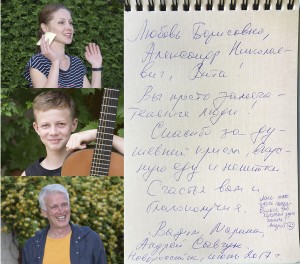 Любовь Борисовна,
Александр Николае-
вич, Вита!
Вы просто замеча-
тельные люди!
Спасибо за ду-
шевный прием, вкус-
ную еду и напитки.
Счастья вам и
благополучия.
Вадим, Марина,
Андрей
Новороссийск, июнь 2017 г.